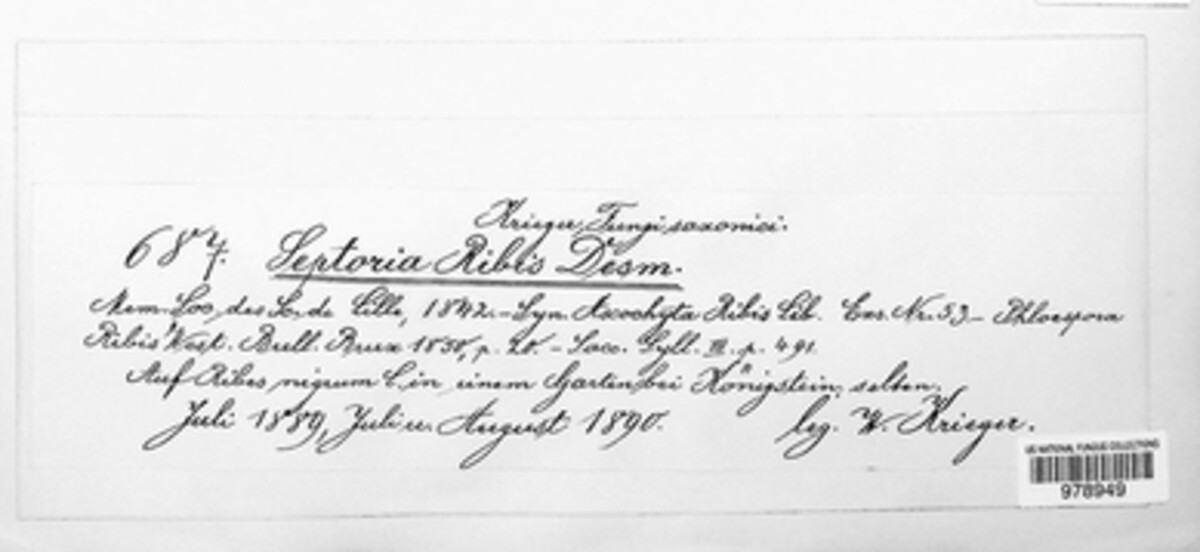 Krieger, Fungi saxonici.
687. Septoria Ribis Desm.
Mem. Soc. des Sc. de Lille, 1842. - Syn. Ascochyta Ribis Lib. Exs. Nr. 53 - Phloeospora
Ribis West. Bull. Brux 1850, p. 20. - Sacc. Syll. III. p. 491.
Auf Ribes nigrum L. in einem Garten bei Königstein, selten.
Juli 1889, Juli u. August 1890. leg. W. Krieger.
US NATIONAL FUNGUS COLLECTIONS
978949